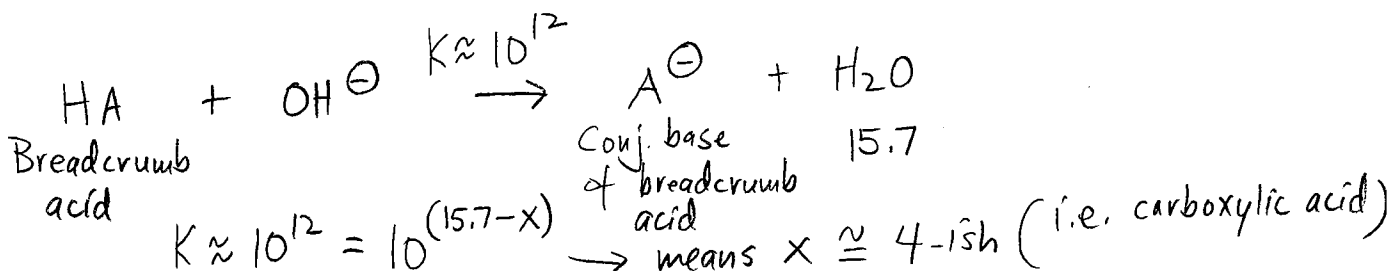 K ≈ 10^12
HA + OH⊖ → A⊖ + H2O
Breadcrumb acid
Conj. base of breadcrumb acid
15.7
K ≈ 10^12 = 10^(15.7-x) → means x ≅ 4-ish (i.e. carboxylic acid)